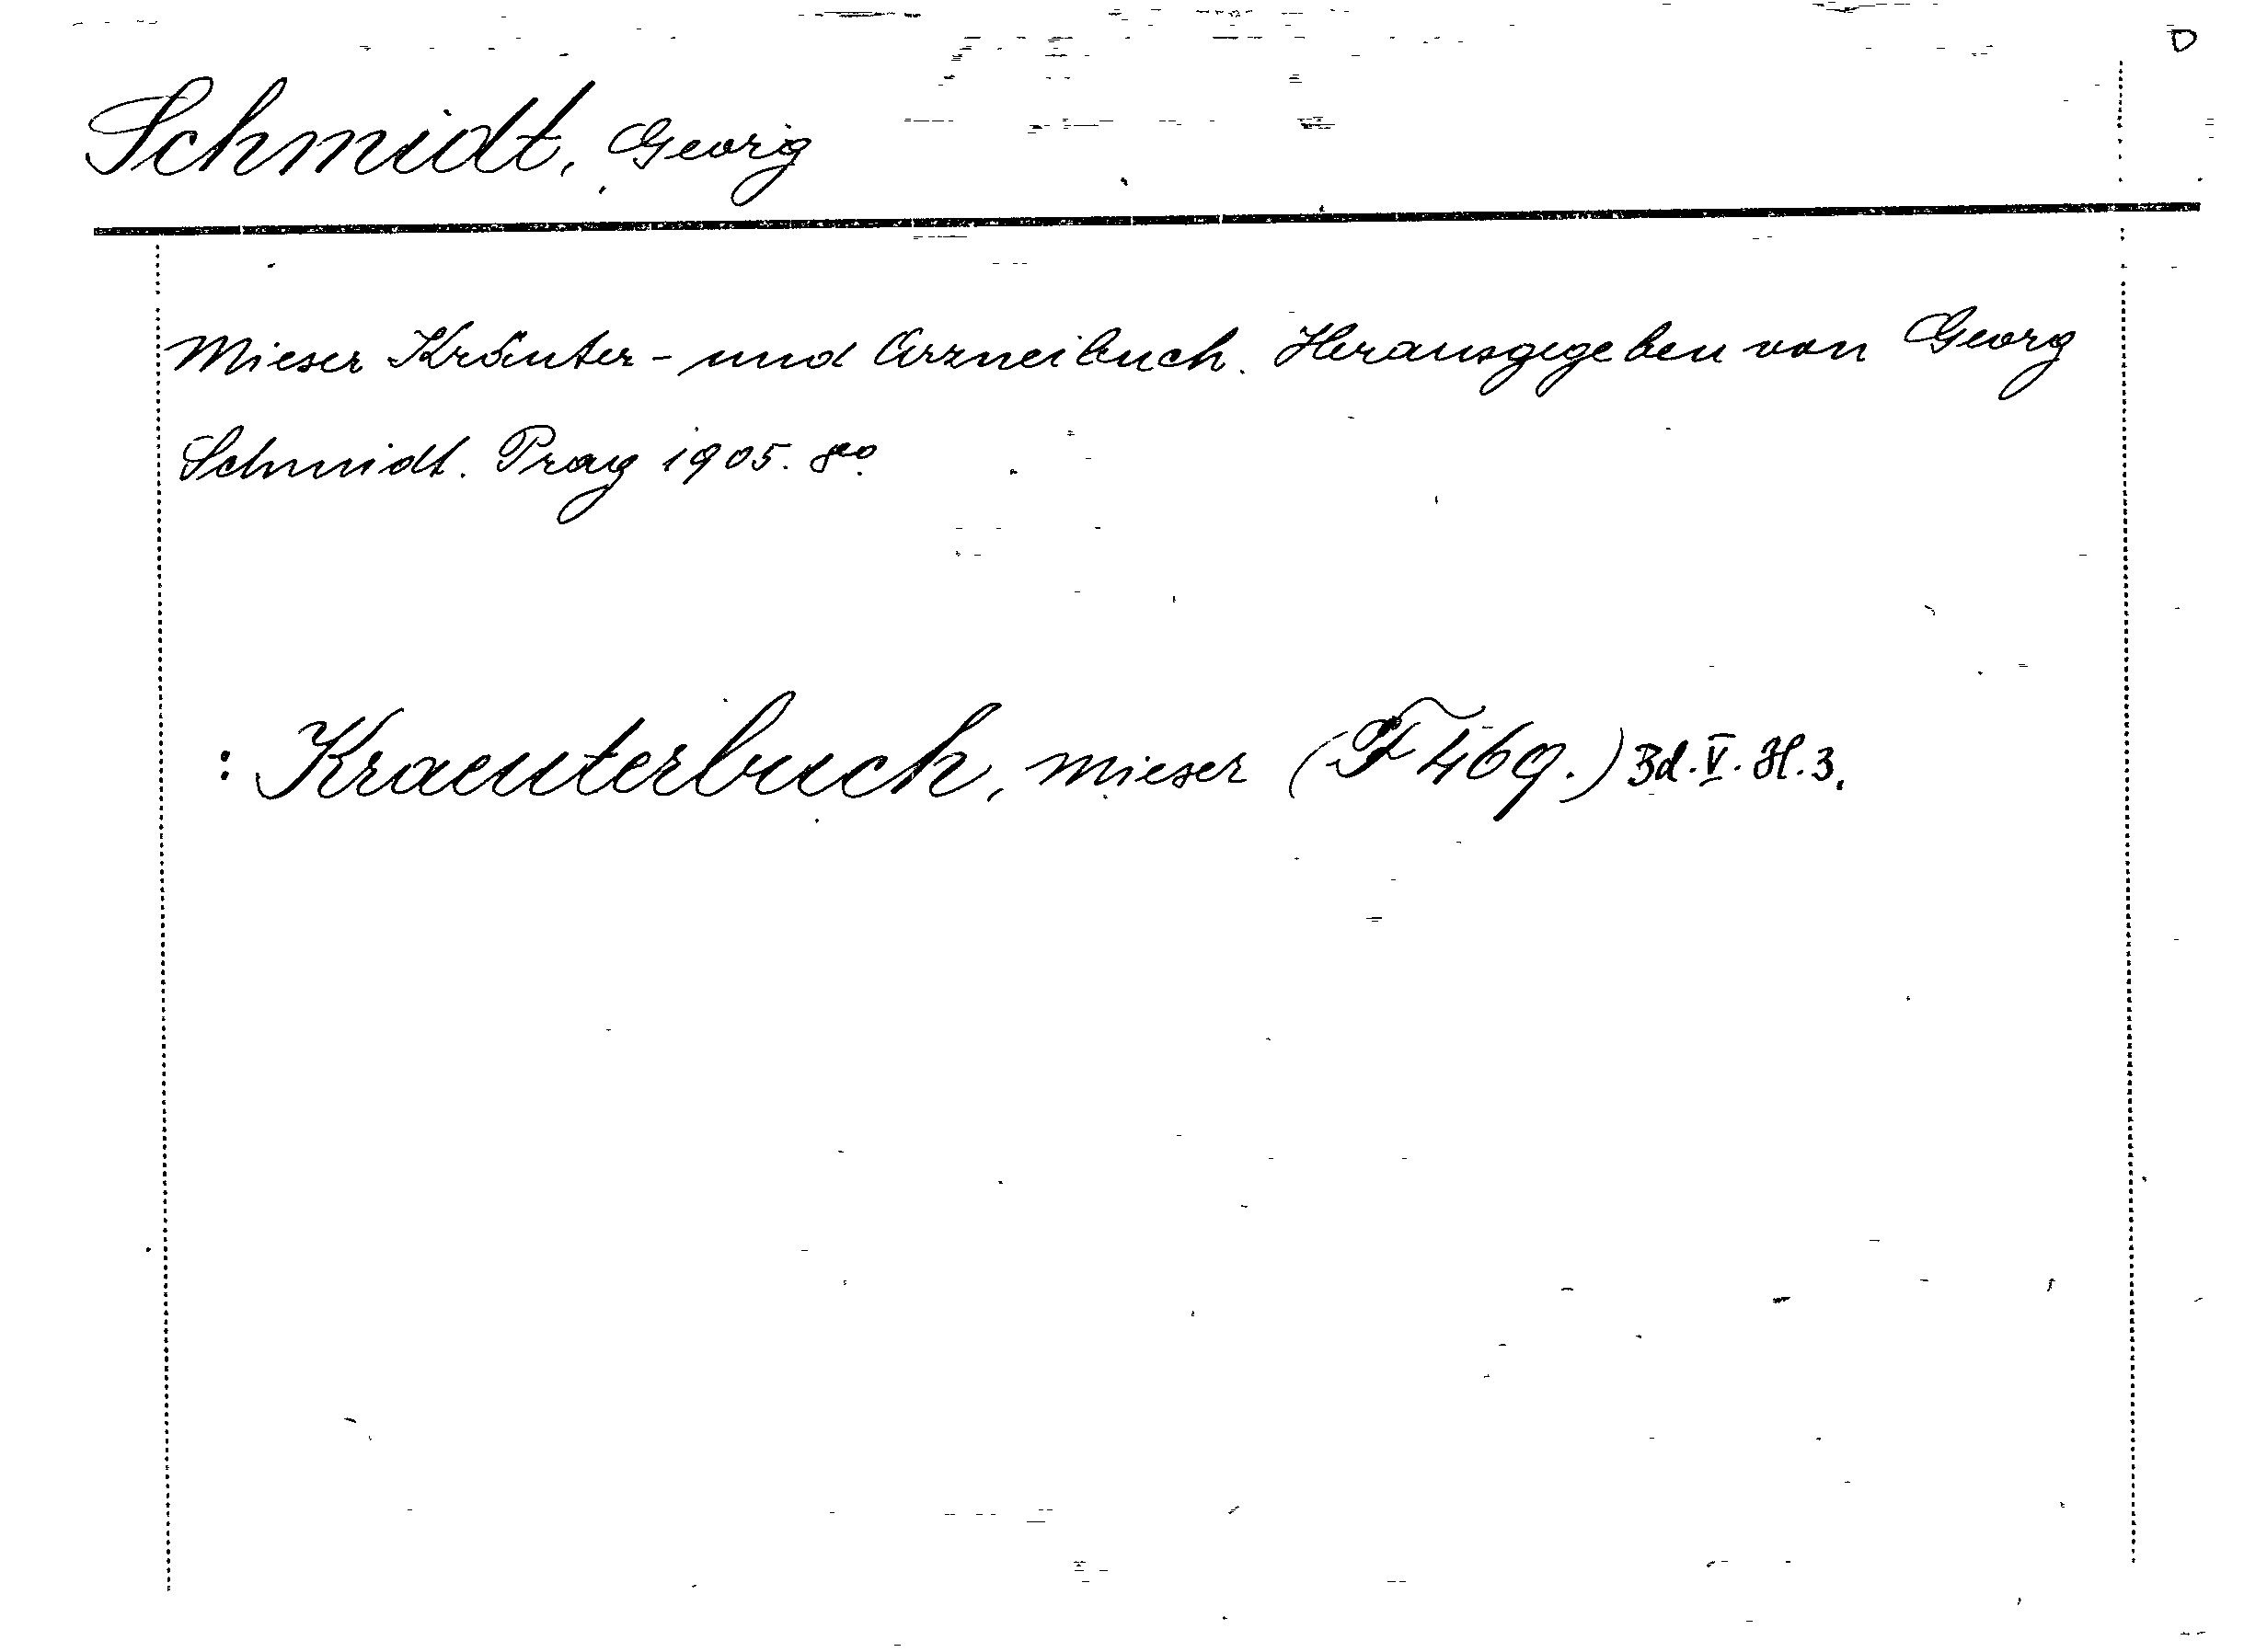 D
Schmidt, Georg
Mieser Kräuter- und Arzneibuch. Herausgegeben von Georg
Schmidt. Prag 1905. 8o.
: Kraeuterbuch, mieser (F 469.) Bd. V. H. 3.